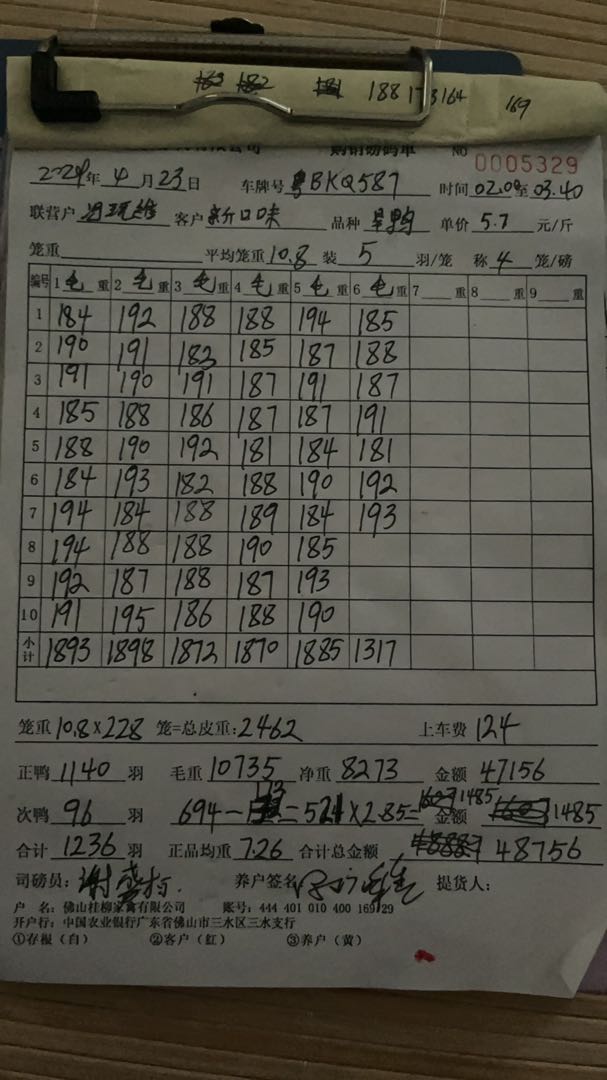 188 173 164 169
有限公司 购销磅码单 NO 0005329
2024年 4 月 23 日 车牌号 粤BKQ587 时间 02.00至 03.40
联营户 客户 新口味 品种 旱鸭 单价 5.7 元/斤
笼重 平均笼重 10.8 装 5 羽/笼 称 4 笼/磅
编号 1 毛 重 2 毛 重 3 毛 重 4 毛 重 5 毛 重 6 毛 重 7 重 8 重 9 重
1 184 192 188 188 194 185
2 190 191 182 185 187 188
3 191 190 191 187 191 187
4 185 188 186 187 187 191
5 188 190 192 181 184 181
6 184 193 182 188 190 192
7 194 184 188 189 184 193
8 194 188 188 190 185
9 192 187 188 187 193
10 191 195 186 188 190
小计 1893 1898 1872 1870 1885 1317
笼重 10.8×228 笼=总皮重: 2462 上车费 124
正鸭 1140 羽 毛重 10735 净重 8273 金额 47156
次鸭 96 羽 694-173=521×2.85= 1485 金额 1485
合计 1236 羽 正品均重 7.26 合计总金额 48756
司磅员: 养户签名 提货人:
户 名: 佛山桂柳家禽有限公司 账号: 444 401 010 400 169 29
开户行: 中国农业银行广东省佛山市三水区三水支行
①存根（白） ②客户（红） ③养户（黄）